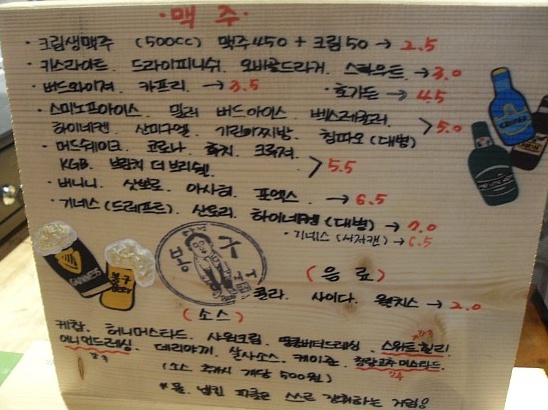 ·맥주·
· 크림생맥주 (500cc) 맥주450 + 크림50 → 2.5
· 카스라이트. 드라이피니쉬. 오비골드라거. 스타우트. → 3.0
· 버드와이저. 카프리. → 3.5 · 호가든 → 4.5
· 스미노프아이스. 밀러 버드아이스. 벡스
하이네켄. 산미구엘. 기린이찌방. 칭따오 (대병) > 5.0
· 머드쉐이크. 코로나. 후치. 크루져.
KGB. > 5.5
· 버니니. 산토리. 아사히. → 6.5
· 기네스 (드래프트). 산토리. 하이네켄 (대병) → 7.0
· 기네스 → 6.5
GUINNESS
봉구
BEER
봉구
(음료)
콜라. 사이다. 웰치스 → 2.0
(소스)
케찹. 허니머스타드. 사워크림. 땅콩버터드레싱. 스위트칠리
어니언드레싱. 데리야끼. 살사소스. 케이준. 청양고추머스타드
(소스 추가시 개당 500원)
*물. 냅킨 피클은 쓰리 강화하는 거림♡